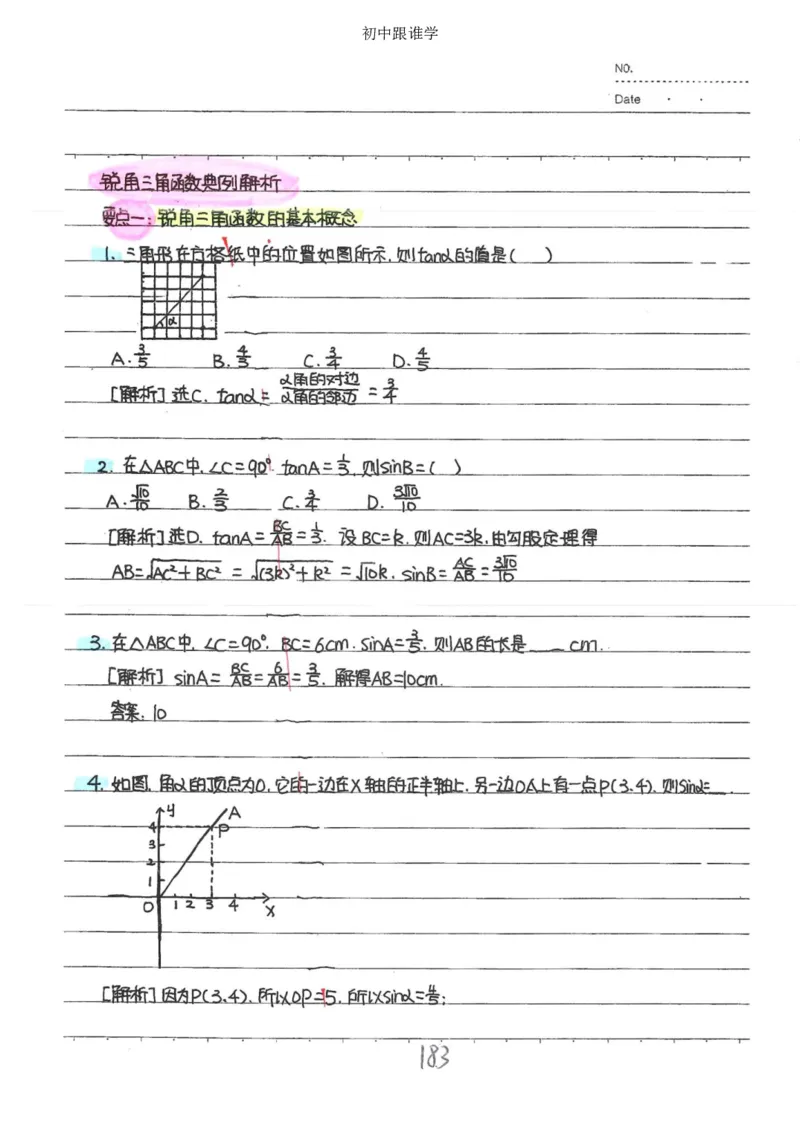 初中跟谁学
NO.
Date
锐角三角函数典例解析
要点一:锐角三角函数的基本概念
1. 三角形在方格纸中的位置如图所示,则tanα的值是( )
α
A. 3/5 B. 4/3 C. 3/4 D. 4/5
[解析]选C. tanα = α角的对边/α角的邻边 = 3/4
2. 在△ABC中,∠C=90°. tanA=1/3,则sinB=( )
A. √10/10 B. 2/3 C. 3/4 D. 3√10/10
[解析]选D. tanA=BC/AB=1/3. 设BC=k,则AC=3k,由勾股定理得
AB=√AC²+BC² = √(3k)²+k² = √10k. sinB=AC/AB=3√10/10
3. 在△ABC中,∠C=90°, BC=6cm. sinA=3/5, 则AB的长是___cm.
[解析] sinA=BC/AB=6/AB=3/5. 解得AB=10cm.
答案. 10
4. 如图,角α的顶点为O,它的一边在X轴的正半轴上,另一边OA上有一点P(3,4),则Sinα=__.
y A
4 P
3
2
1
O 1 2 3 4 X
[解析]因为P(3,4),所以OP=5,所以sinα=4/5;
183